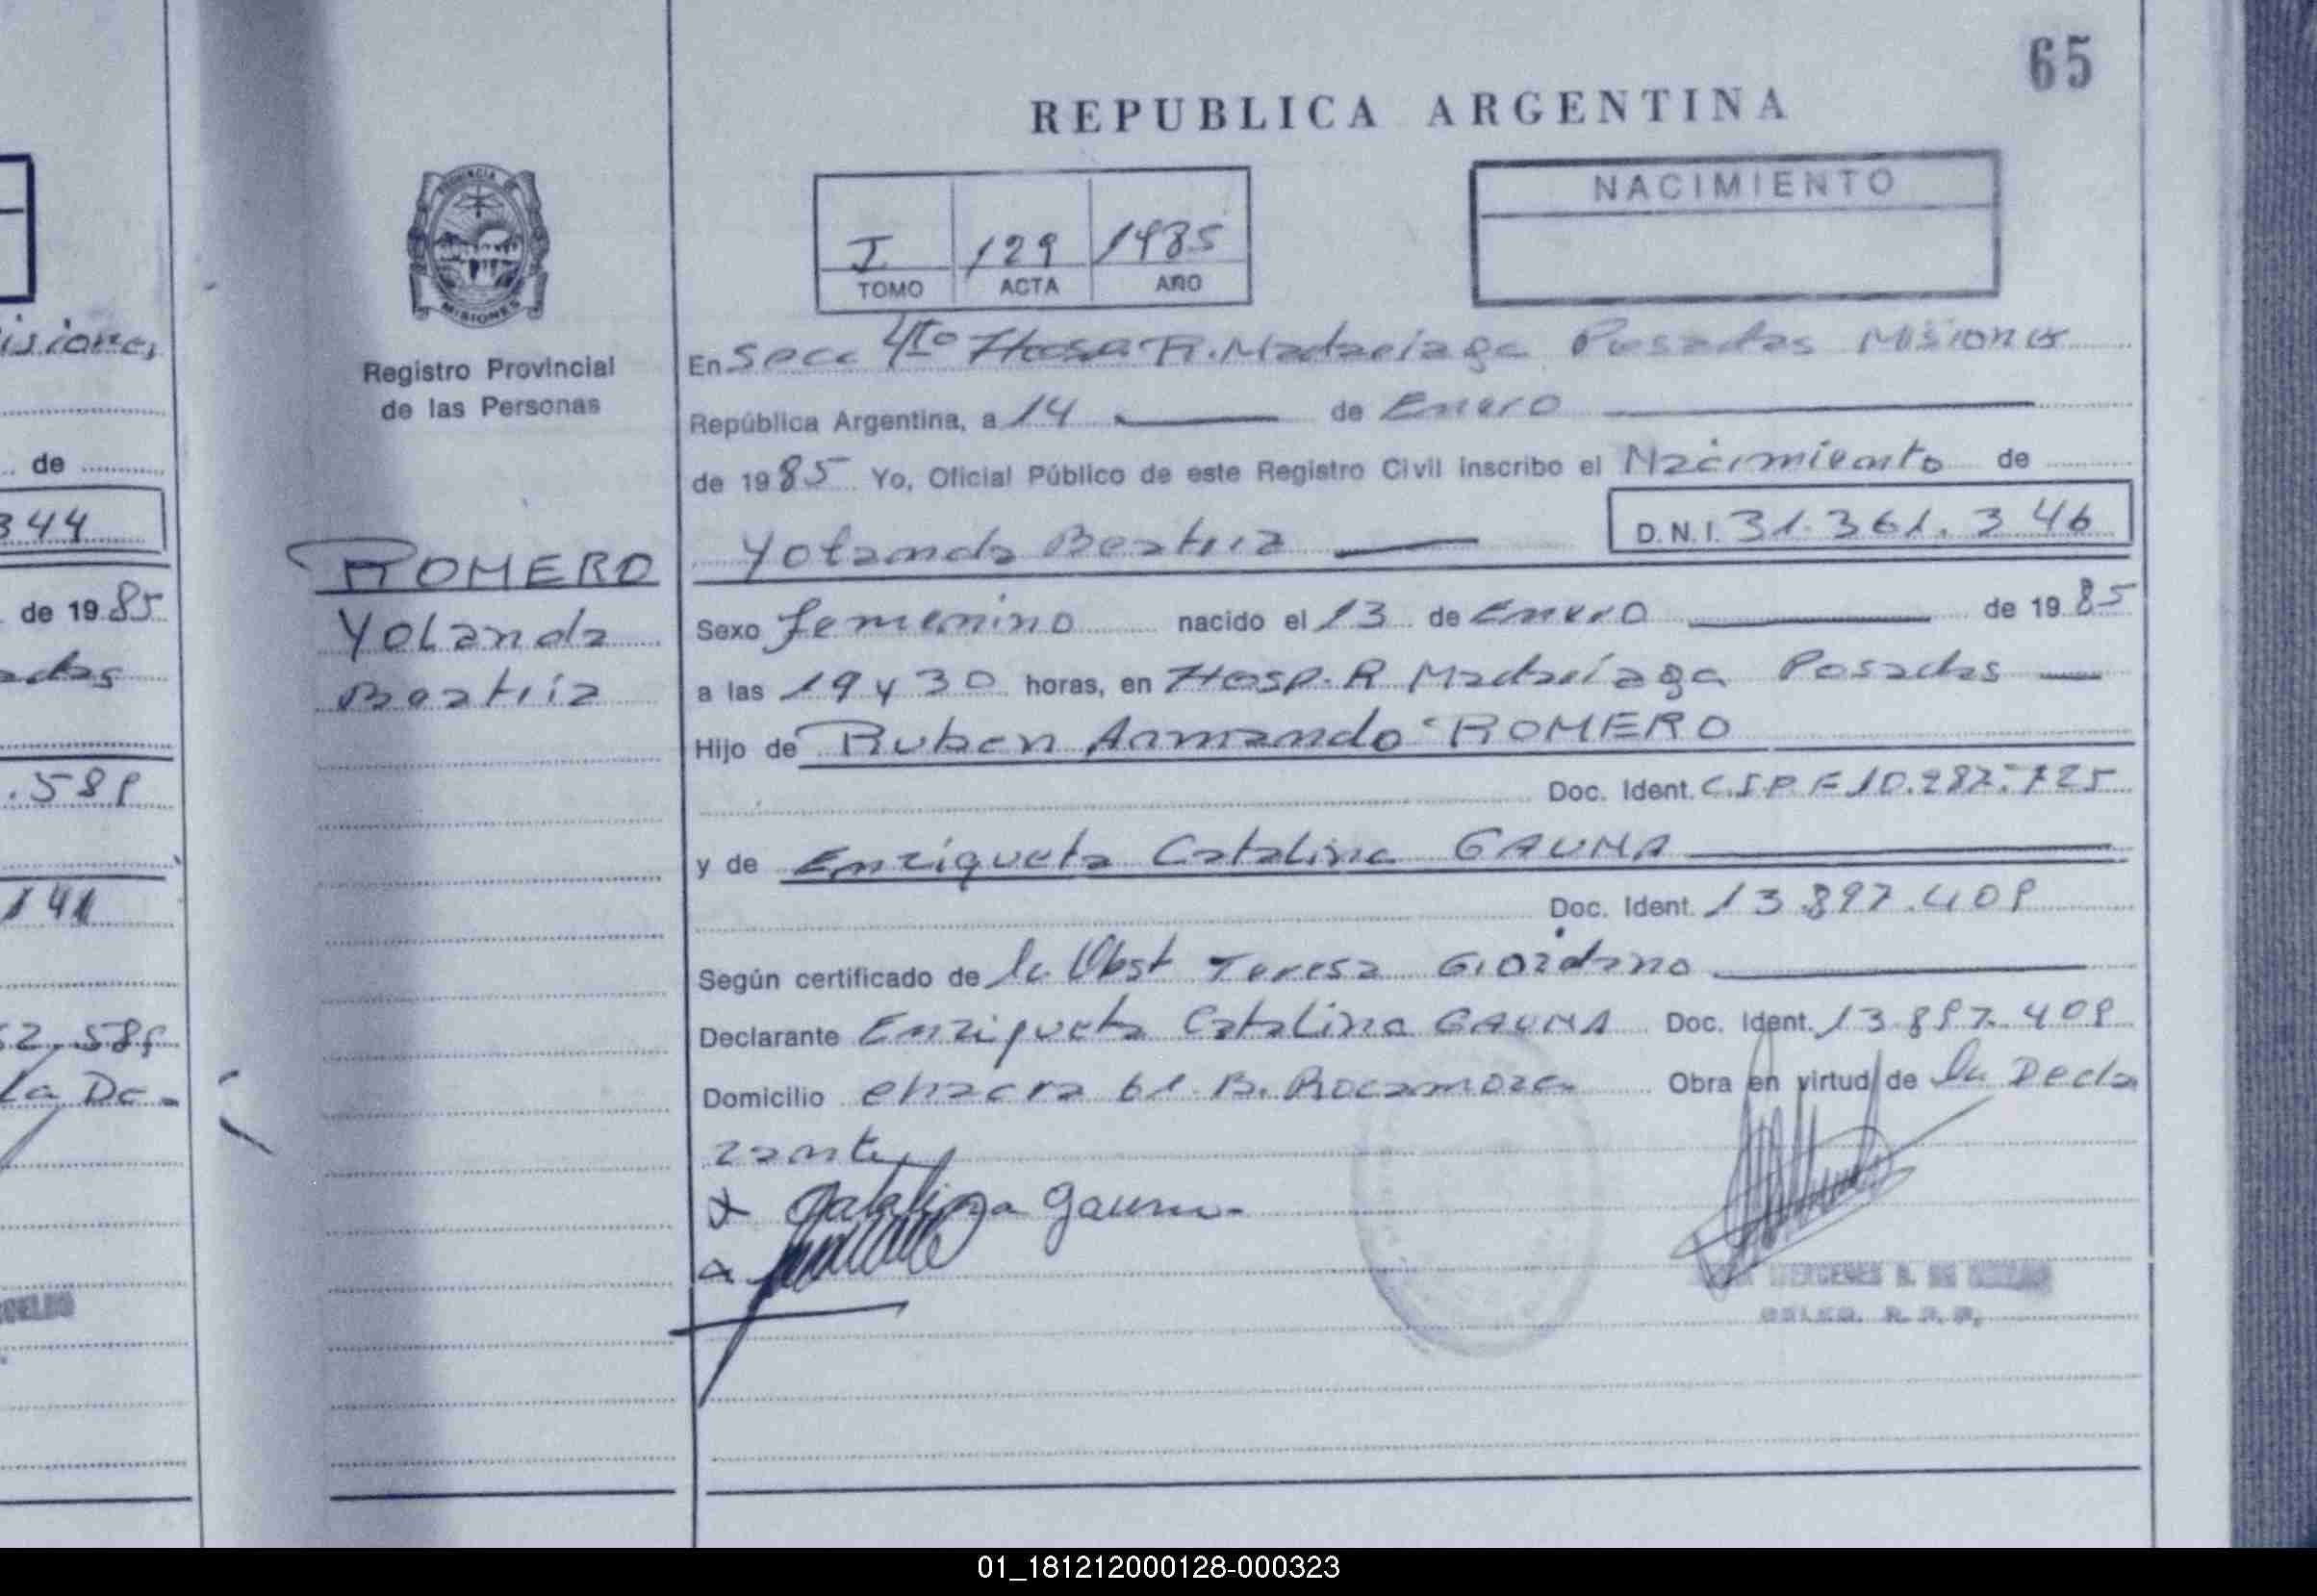 65
REPUBLICA ARGENTINA
PROVINCIA DE
MISIONES
Registro Provincial
de las Personas
I 129 1985
TOMO ACTA AÑO
NACIMIENTO
En Secc 4to Hosp R. Madariaga Posadas Misiones
República Argentina, a 14 de Enero
de 1985 Yo, Oficial Público de este Registro Civil inscribo el Nacimiento de
Yolanda Beatriz D.N.I. 31.361.346
ROMERO
Yolanda
Beatriz
Sexo femenino nacido el 13 de Enero de 1985
a las 19 y 30 horas, en Hosp. R Madariaga Posadas
Hijo de Ruben Armando ROMERO
Doc. Ident. 10.287.725
y de Enriqueta Catalina GAUNA
Doc. Ident. 13.897.409
Según certificado de la Obst Teresa Giordano
Declarante Enriqueta Catalina GAUNA Doc. Ident. 13.897.409
Domicilio chacra 61 B. Rocamora Obra en virtud de la Decla
rante
x Catalina Gauna
isiones
de
344
de 1985
adas
.589
141
62.589
la De-
01_181212000128-000323